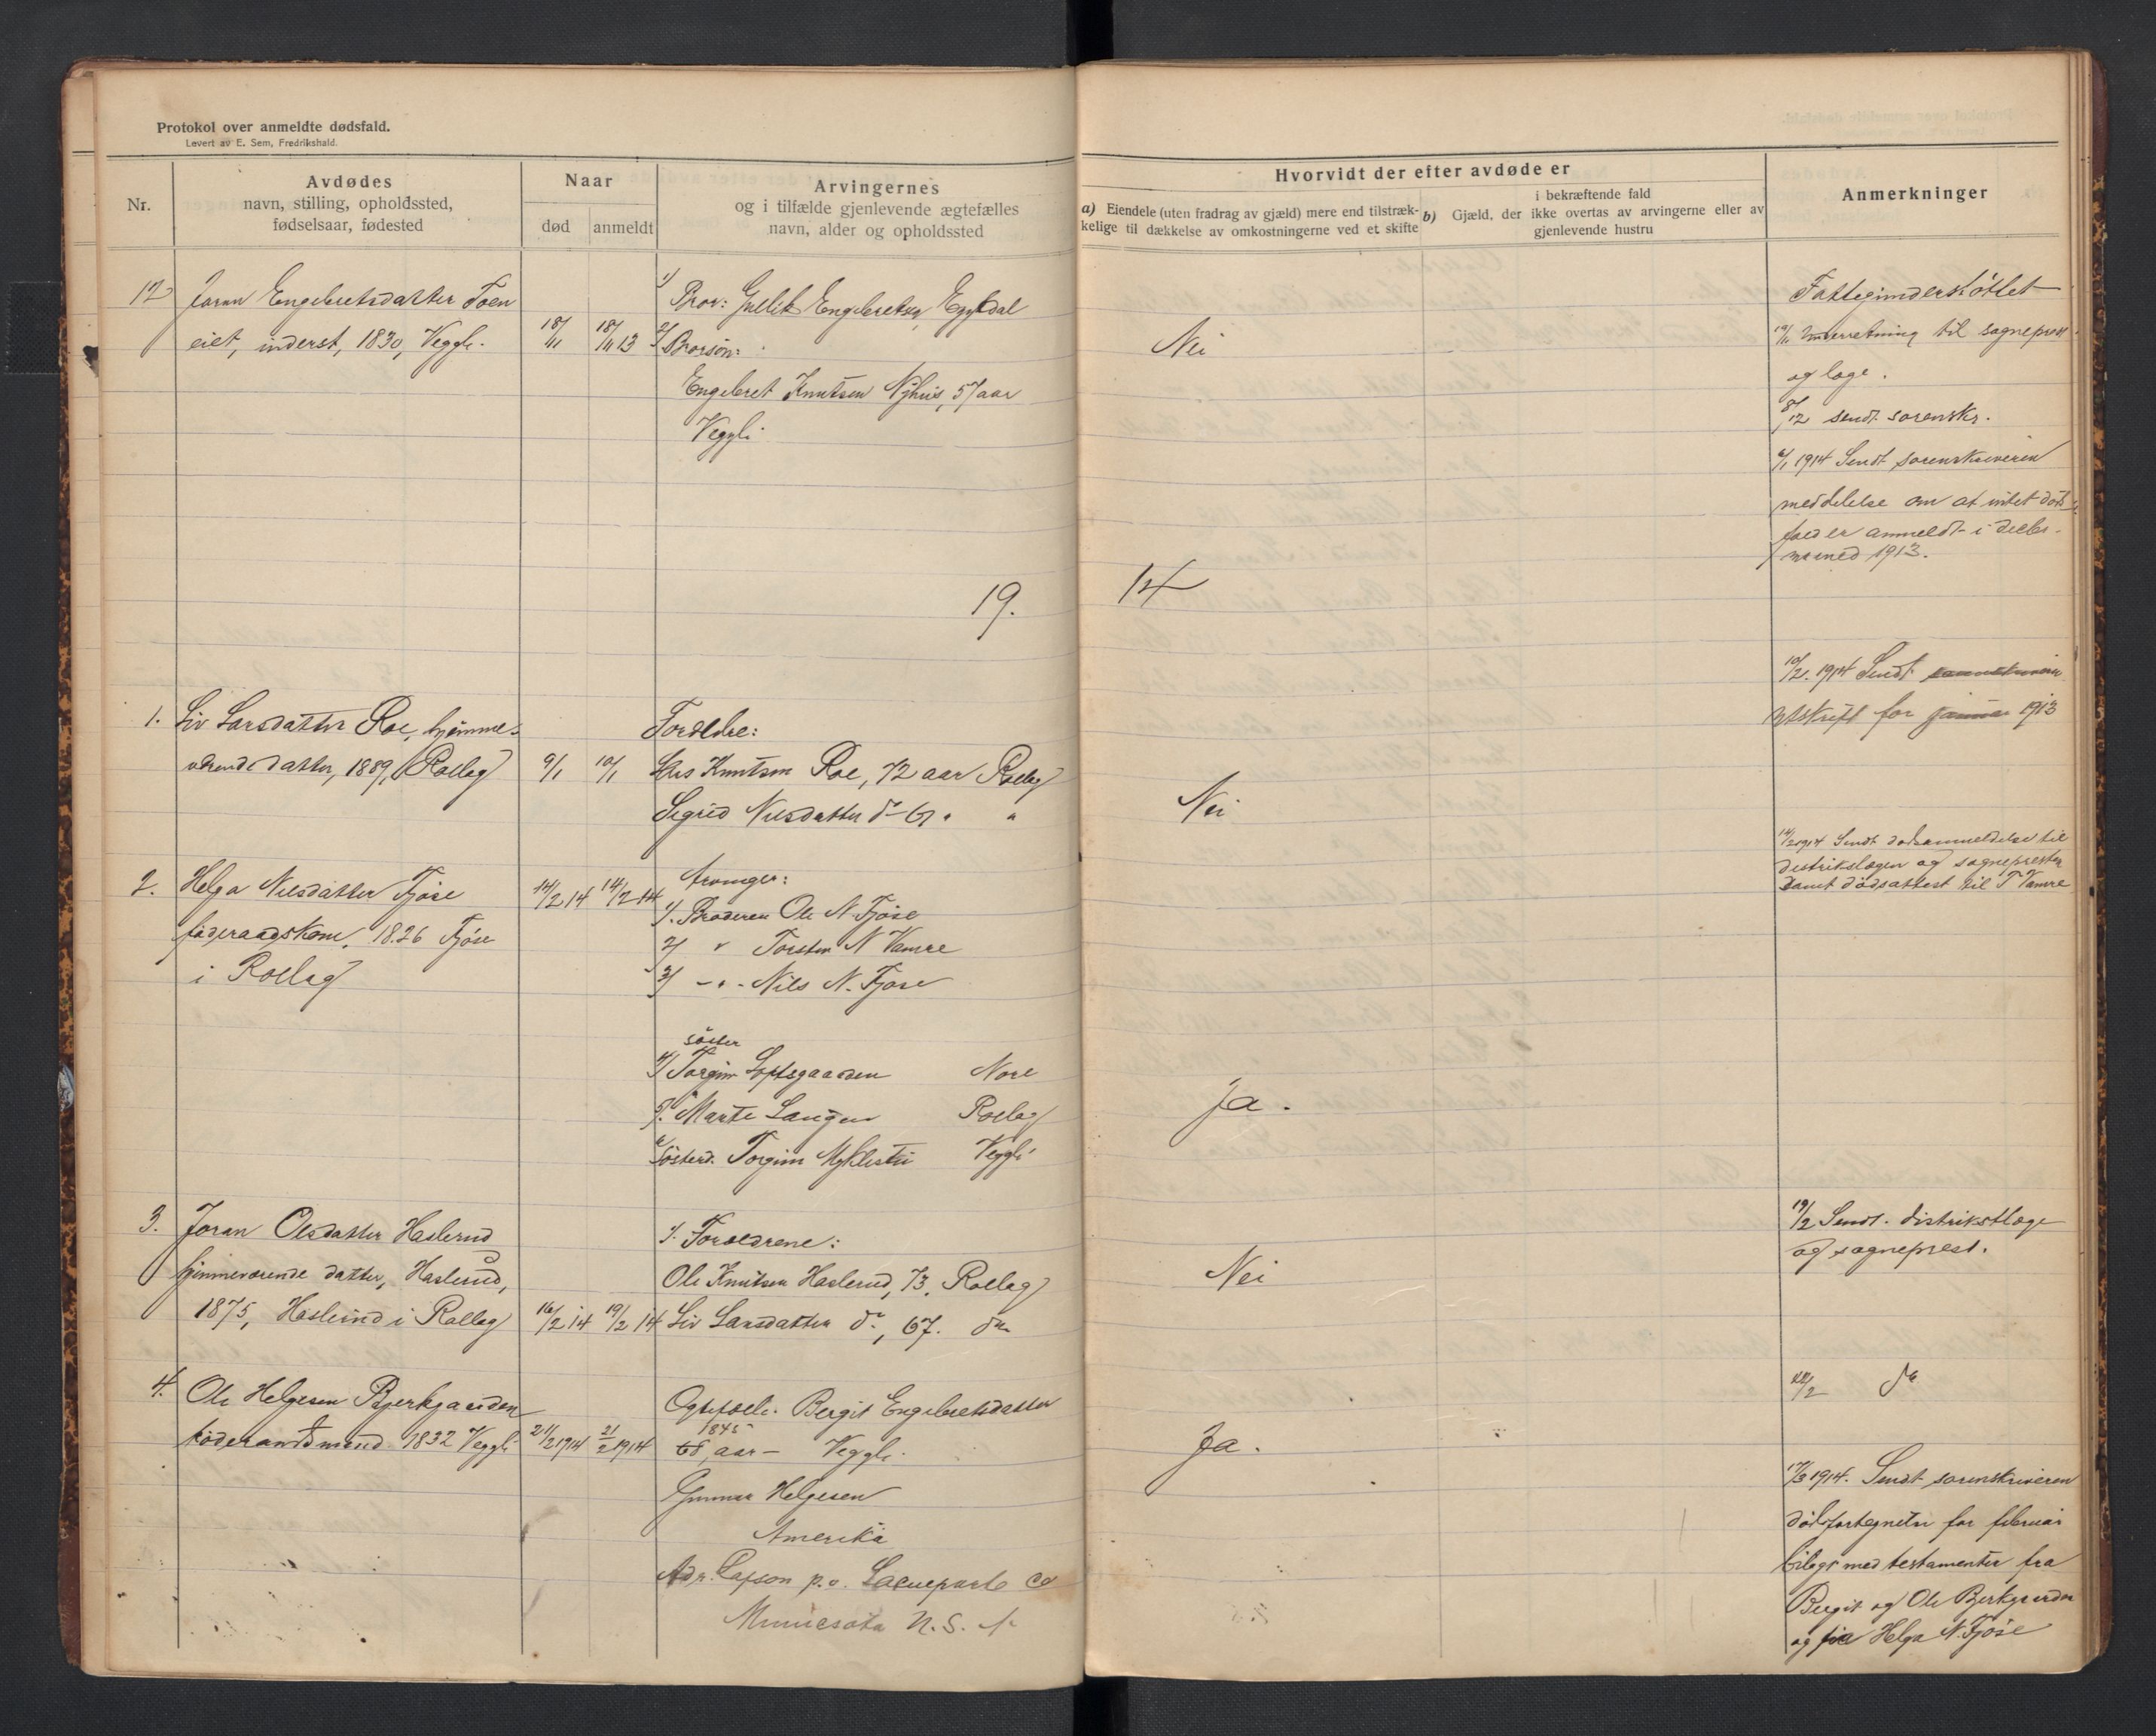 Protokol over anmeldte dødsfald.
Levert av E. Sem, Fredrikshald.
Nr.
Avdødes
navn, stilling, opholdssted,
fødselsaar, fødested
Naar
død
anmeldt
Arvingernes
og i tilfælde gjenlevende ægtefælles
navn, alder og opholdssted
Hvorvidt der efter avdøde er
a) Eiendele (uten fradrag av gjæld) mere end tilstræk-
kelige til dækkelse av omkostningerne ved et skifte
i bekræftende fald
b) Gjæld, der ikke overtas av arvingerne eller av
gjenlevende hustru
Anmerkninger
12 Joran Engebretsdatter Toen
eiet, inderst, 1830, Veggli.
18/11 18/11 13
1/ Bror: Gullik Engebretsen
2/ Brorsøn:
Engebret Knutsen Nyhus, 57 aar
Veggli
Nei
Fattigunderstøttet
19/11 Underretning til sogneprest
og læge.
8/12 sendt sorenskr.
6/1 1914 Sendt sorenskriveren
meddelelse om at intet døds
fald er anmeldt i decbr.
maaned 1913.
19. 14
1. Liv Larsdatter Roe, hjemme-
værende datter, 1889, Rollag
9/1 10/1
Forældre:
Lars Knutsen Roe, 72 aar Rollag
Sigrid Nilsdatter do 67 " "
Nei
10/2. 1914 Sendt sorenskriveren
utskrift for januar 1913
2. Helga Nilsdatter Fjøse
føderaadskone, 1826 Fjøse
i Rollag
14/2 14 14/2 14
Arvinger:
1/. Broderen Ole N. Fjøse
2/ " Torsten N Vamre
3/ - " - Nils N. Fjøse
søster
4/ Torgun Loftsgaarden Nore
5/. Marte Laugen Rollag
6/ Søsterd. Torgun Myklestu Veggli
Ja.
14/2 1914 Sendt dødsanmeldelse til
distrikslægen og sognepresten
samt dødsattest til T Vamre
3. Joran Olsdatter Haslerud
hjemmeværende datter, Haslerud,
1875, Haslerud i Rollag
16/2 14 19/2 14
1. Forældrene:
Ole Knutsen Haslerud, 73, Rollag
Liv Larsdatter do, 67. do
Nei
19/2 Sendt. distrikstlæge
og sogneprest.
4. Ole Helgesen Bjerkgaarden
føderaadmand 1832 Veggli
21/2 1914 21/2 1914
Egtefælle: Bergit Engebretsdatter
1845
68 aar - Veggli.
Gunnar Helgesen
Amerika
Adr.
Minnesota N. S. A
Ja.
22/2 do
17/3 1914. Sendt sorenskriveren
dødsfortegnelse for februar
bilagt med testamenter fra
Bergit og Ole Bjerkgaarden
og fra Helga N. Fjøse